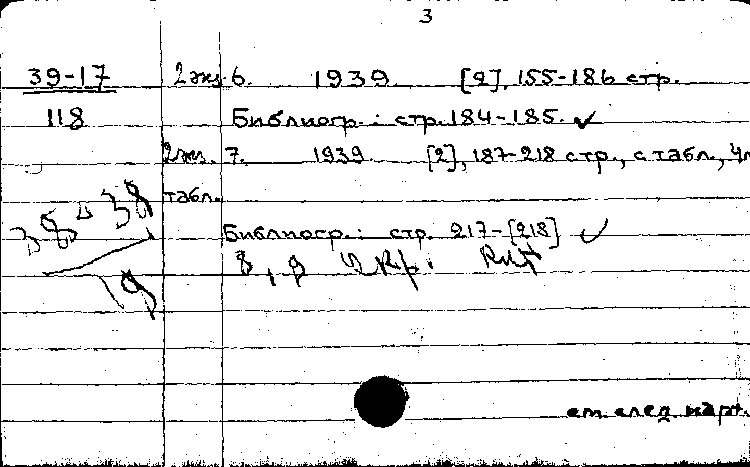 3
39-17 2 экз. 6. 1939. [2], 155-186 стр.
118 Библиогр.: стр. 184-185. ✓
2 экз. 7. 1939. [2], 187-218 стр., с табл., 4 л.
табл.
38-38
19
Библиогр.: стр. 217-[218] ✓
8, 9
см. след. карт.